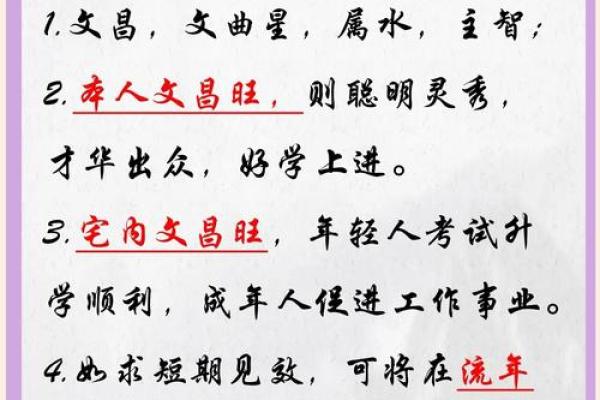 1.文昌，文曲星，属水，主智；
2.本人文昌旺，则聪明灵秀，
才华出众，好学上进。
3.宅内文昌旺，年轻人考试升
学顺利，成年人促进工作事业。
4.如求短期见效，可将在流年